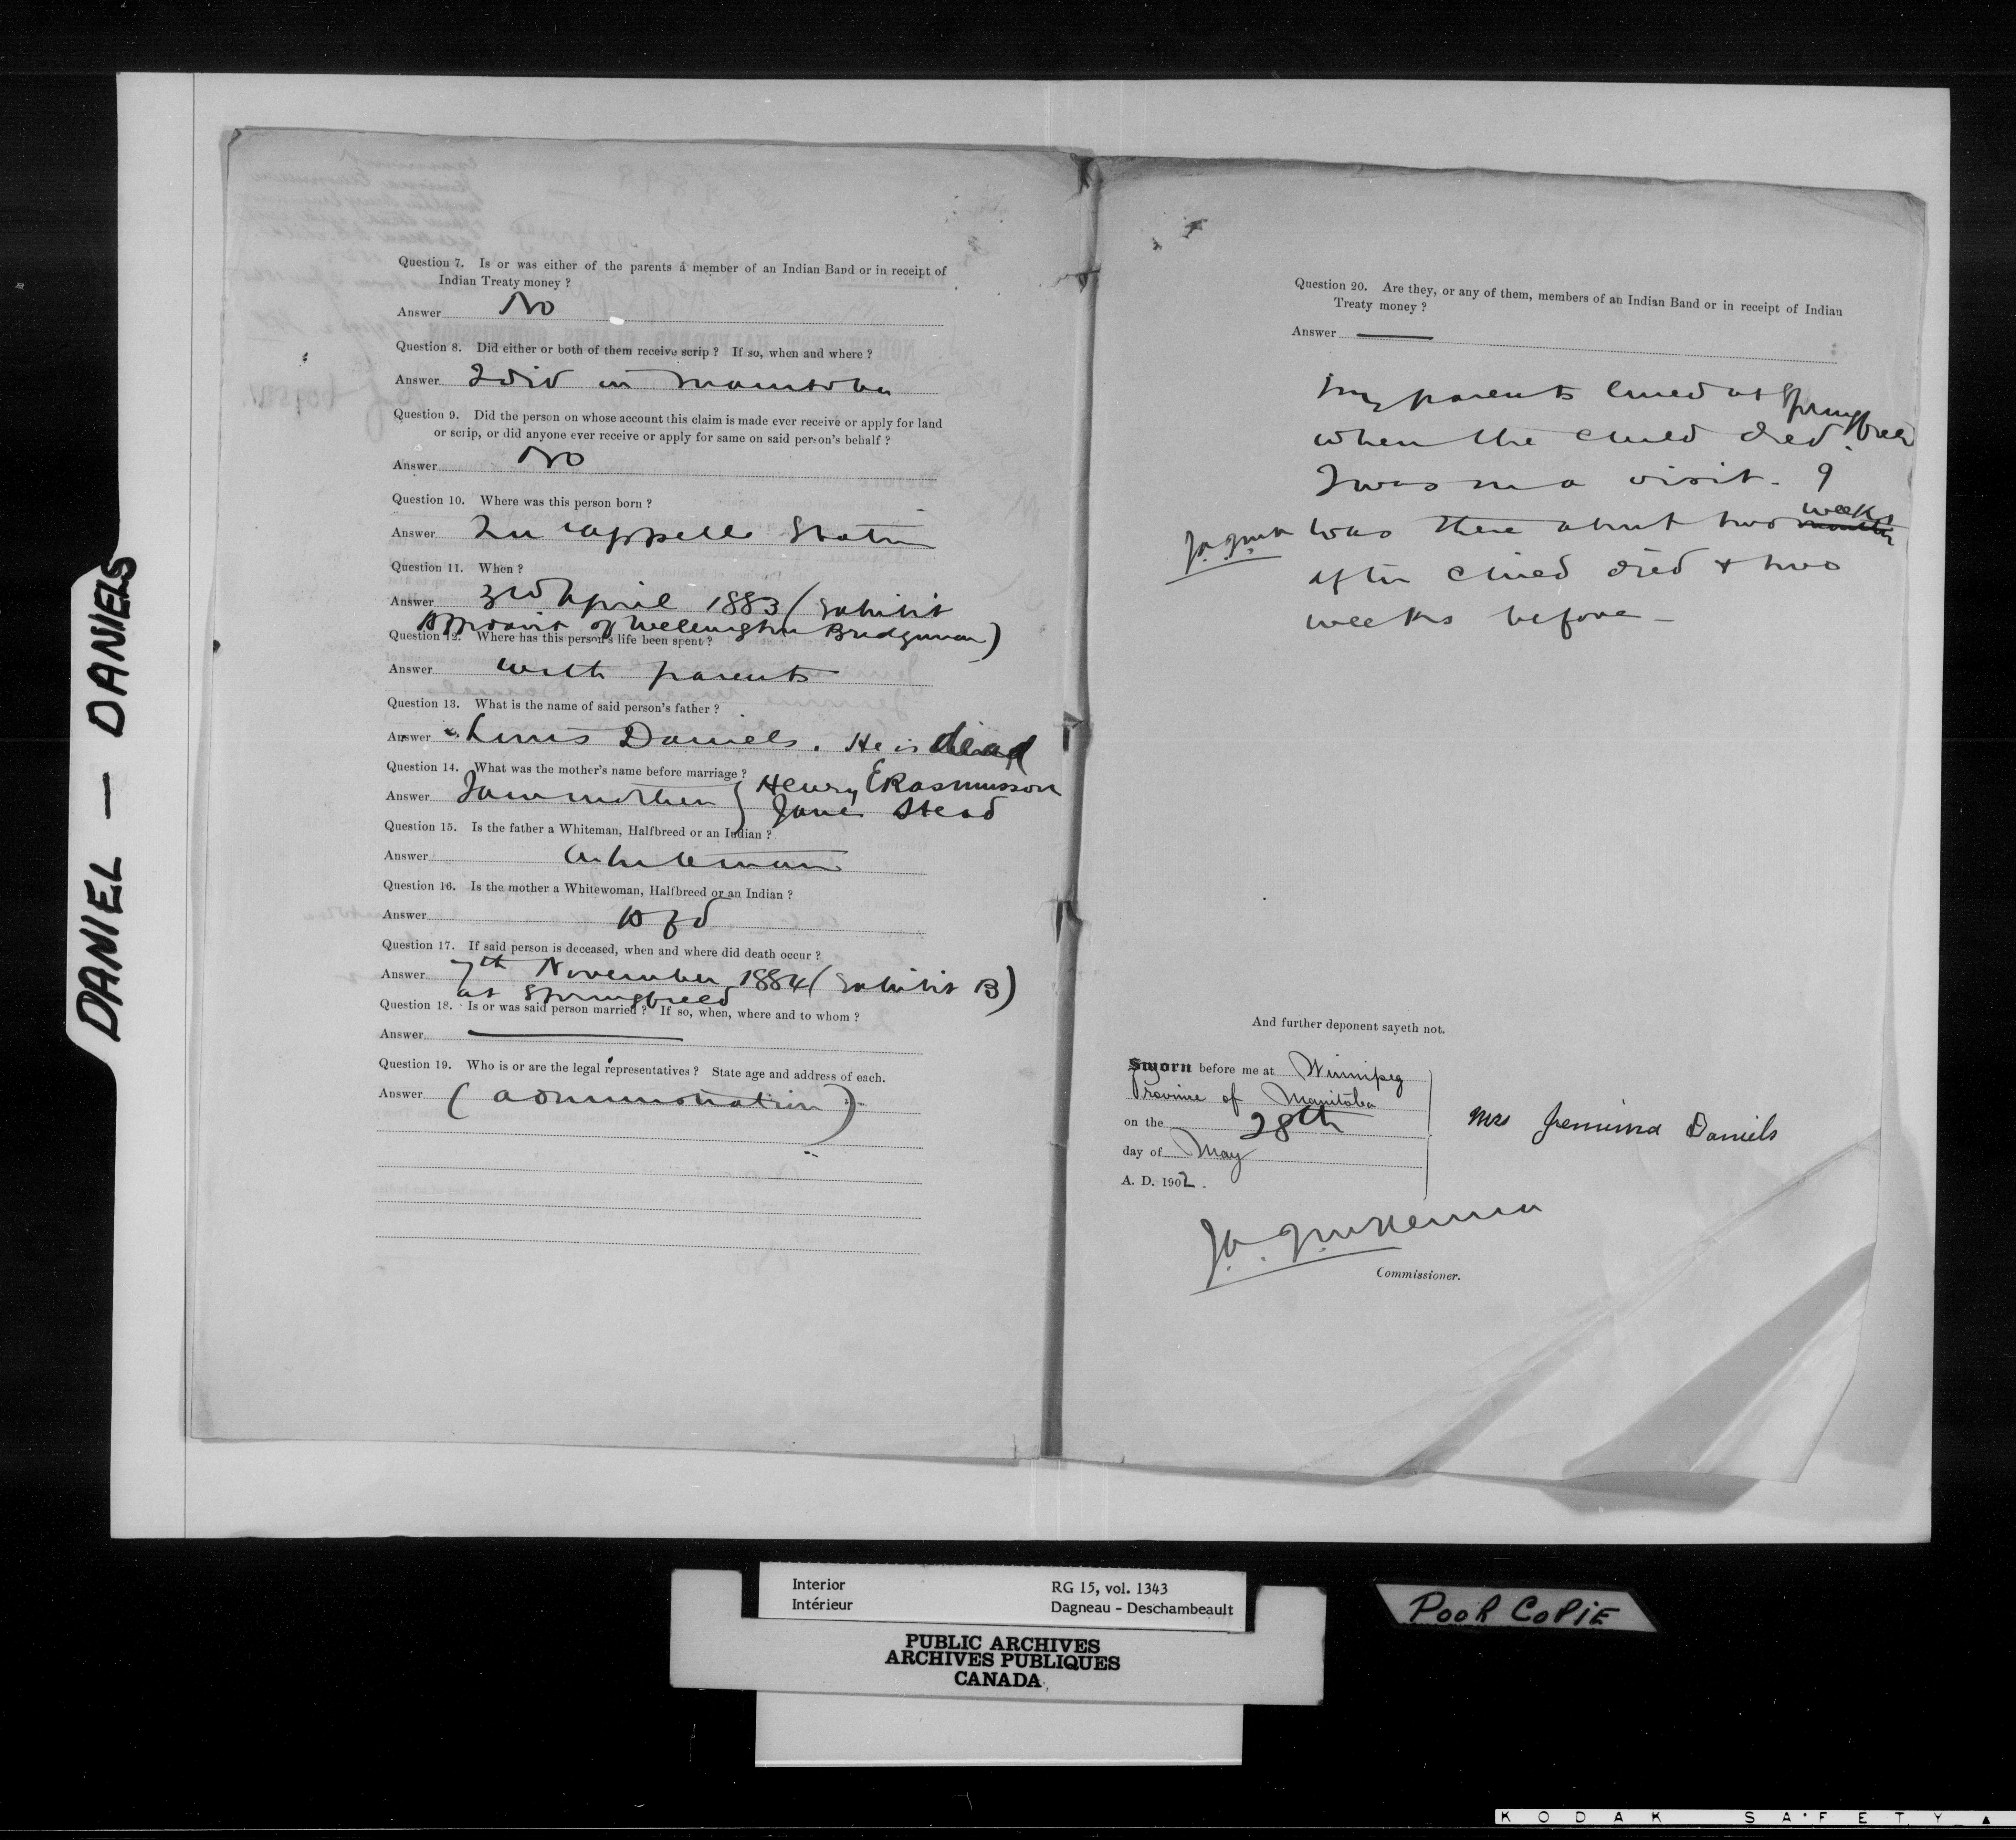 DANIEL — DANIELS
Question 7. Is or was either of the parents a member of an Indian Band or in receipt of
Indian Treaty money ?
Answer No
Question 8. Did either or both of them receive scrip ? If so, when and where ?
Answer I did in Manitoba
Question 9. Did the person on whose account this claim is made ever receive or apply for land
or scrip, or did anyone ever receive or apply for same on said person's behalf ?
Answer No
Question 10. Where was this person born ?
Answer Qu'appelle Station
Question 11. When ?
Answer 3rd April 1883 (Exhibit
Affidavit of Wellington Bridgman)
Question 12. Where has this person's life been spent ?
Answer with parents
Question 13. What is the name of said person's father ?
Answer Daniels. He is dead
Question 14. What was the mother's name before marriage ?
Answer I am mother } Henry ERasmusson
Jane Stead
Question 15. Is the father a Whiteman, Halfbreed or an Indian ?
Answer Whiteman
Question 16. Is the mother a Whitewoman, Halfbreed or an Indian ?
Answer
Question 17. If said person is deceased, when and where did death occur ?
Answer 7th November 1884 (Exhibit B)
at Springfield
Question 18. Is or was said person married ? If so, when, where and to whom ?
Answer —
Question 19. Who is or are the legal representatives ? State age and address of each.
Answer (administration)
Question 20. Are they, or any of them, members of an Indian Band or in receipt of Indian
Treaty money ?
Answer —
My parents lived at Springfield
when the child died.
I was on a visit. I
weeks
was there about two months
after child died & two
weeks before —
And further deponent sayeth not.
Sworn before me at Winnipeg
Province of Manitoba
on the 28th
day of May
A. D. 1902.
Mrs Jemima Daniels
J.A. J. McKenna
Commissioner.
Interior
Intérieur
RG 15, vol. 1343
Dagneau - Deschambeault
PUBLIC ARCHIVES
ARCHIVES PUBLIQUES
CANADA
POOR COPIE
KODAK SAFETY